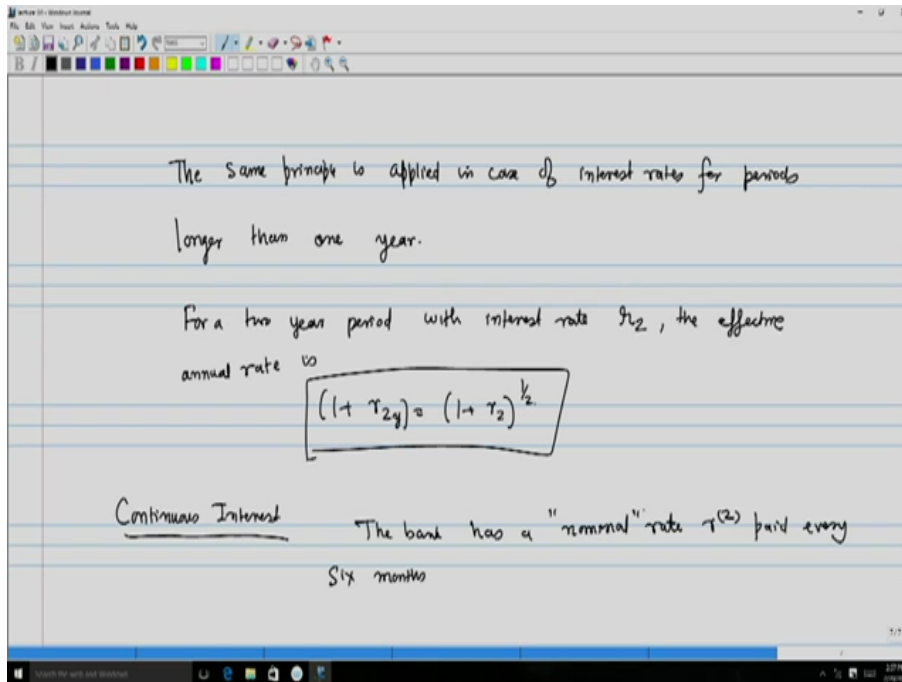 File Edit View Insert Actions Tools Help
The same principle is applied in case of interest rates for periods
longer than one year.
For a two year period with interest rate r₂, the effective
annual rate is
(1+ r₂y) = (1+ r₂)^½.
Continuous Interest
The bank has a "nominal" rate r⁽²⁾ paid every
Six months
7/7
Search the web and Windows